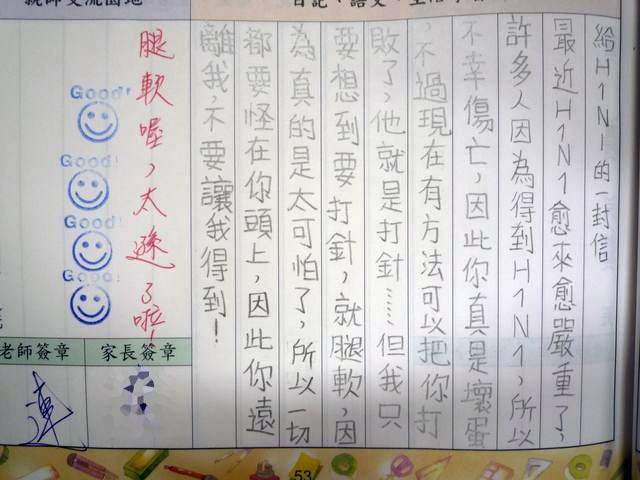 給H1N1的一封信
最近H1N1愈來愈嚴重了，
許多人因為得到H1N1，所以
不幸傷亡，因此你真是壞蛋
，不過現在有方法可以把你打
敗了，他就是打針……但我只
要想到要打針，就腿軟，因
為真的是太可怕了，所以一切
都要怪在你頭上，因此你遠
離我，不要讓我得到！
腿軟喔，太遜了啦！
Good!
Good!
Good!
Good!
家長簽章
老師簽章
53